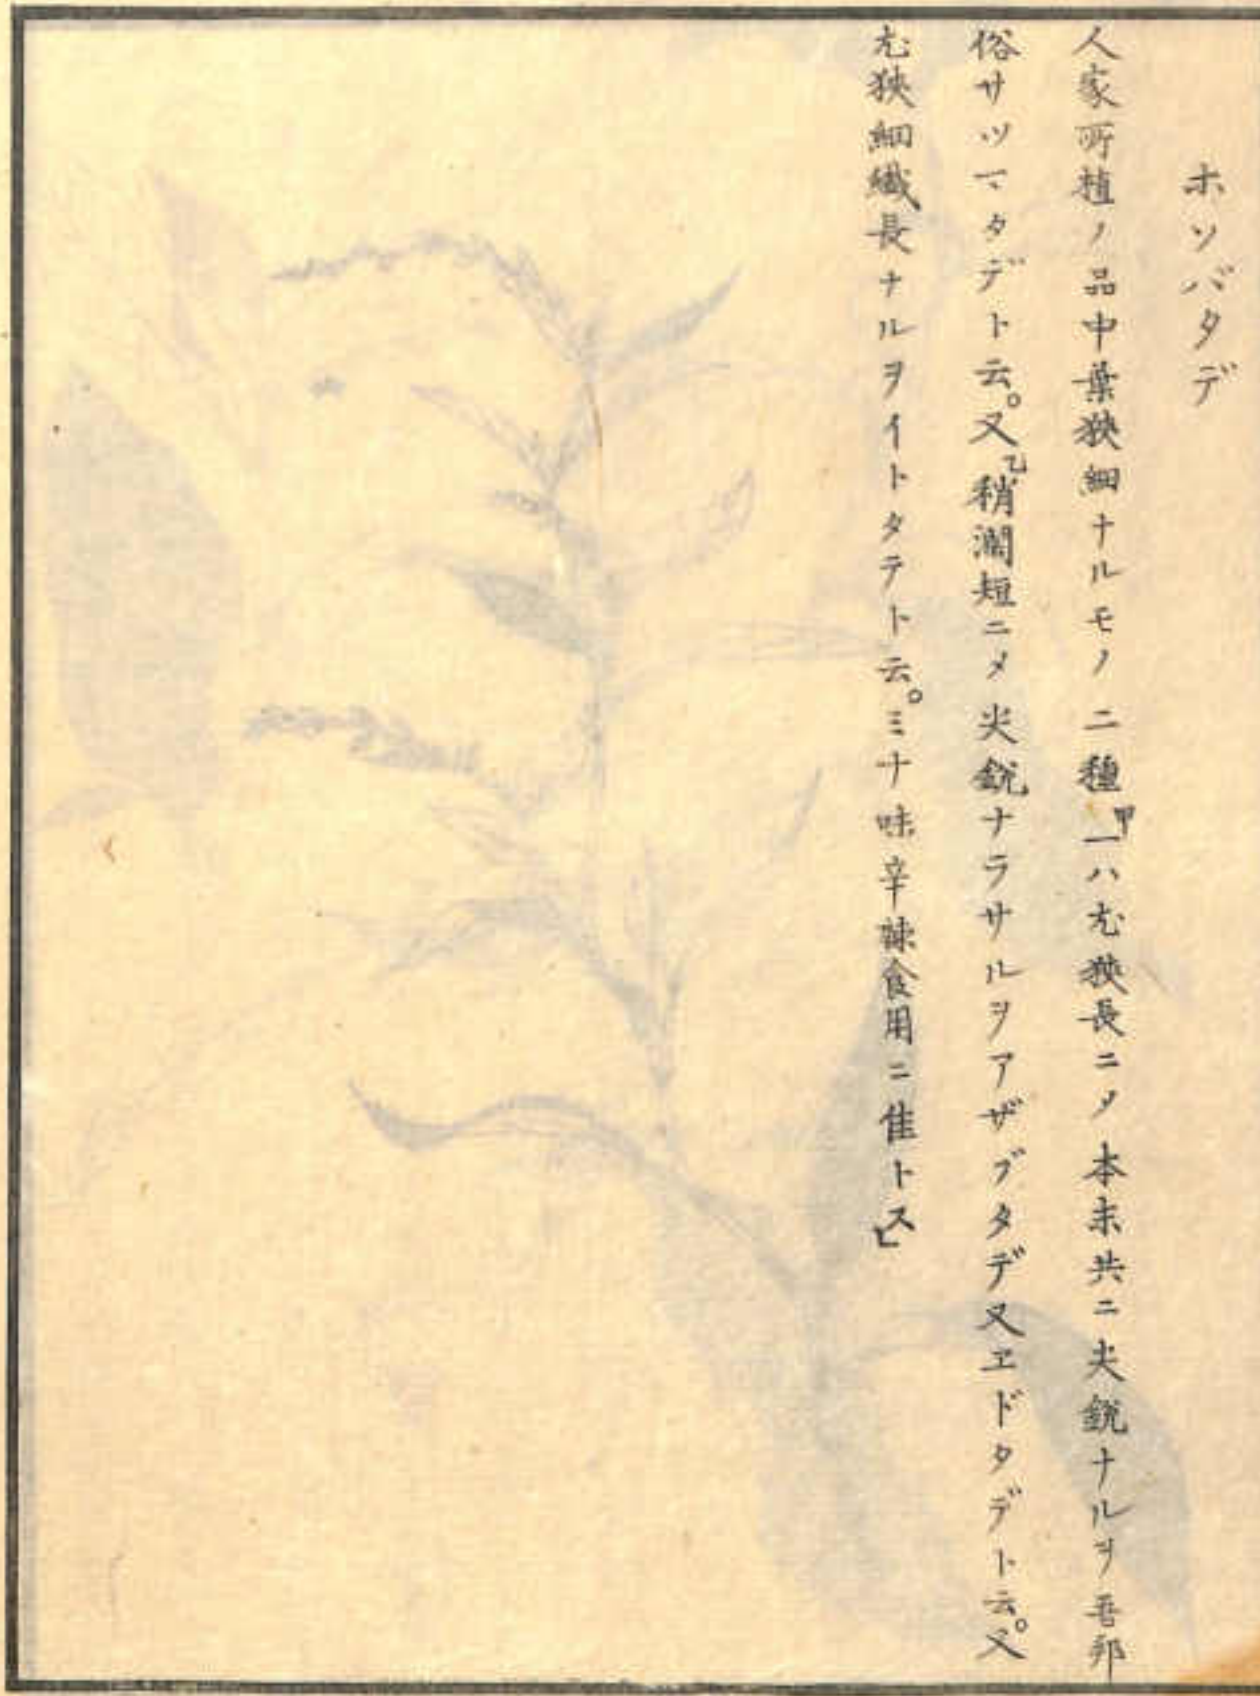 ホソバタデ
人家所植ノ品中葉狹細ナルモノ二種甲一ハ尤狹長ニメ本末共ニ尖鋭ナルヲ吾邦
俗サツマタデト云。又乙稍濶短ニメ尖鋭ナラサルヲアザブタデ又ヱドタデト云。又
尤狹細纎長ナルヲイトタテト云。ミナ味辛辣食用ニ佳トス」